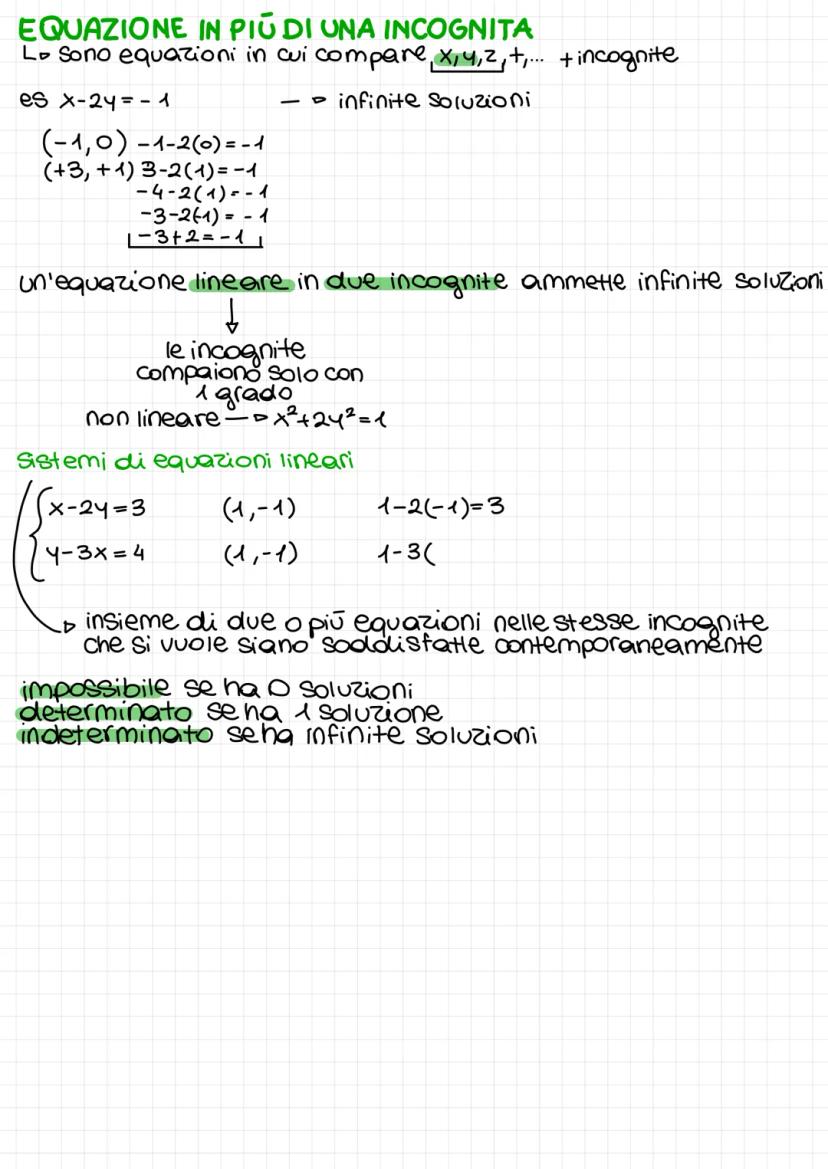 EQUAZIONE IN PIÙ DI UNA INCOGNITA
↳ sono equazioni in cui compare x,y,z,t,... + incognite
es x-2y=-1 —▷ infinite soluzioni
(-1,0) -1-2(0)=-1
(+3,+1) 3-2(1)=-1
-4-2(1)=-1
-3-2(-1)=-1
-3+2=-1
un'equazione lineare in due incognite ammette infinite soluzioni
↓
le incognite
compaiono solo con
1 grado
non lineare —▷ x²+2y²=1
Sistemi di equazioni lineari
x-2y=3 (1,-1) 1-2(-1)=3
y-3x=4 (1,-1) 1-3(
▷ insieme di due o più equazioni nelle stesse incognite
che si vuole siano soddisfatte contemporaneamente
impossibile se ha 0 soluzioni
determinato se ha 1 soluzione
indeterminato se ha infinite soluzioni